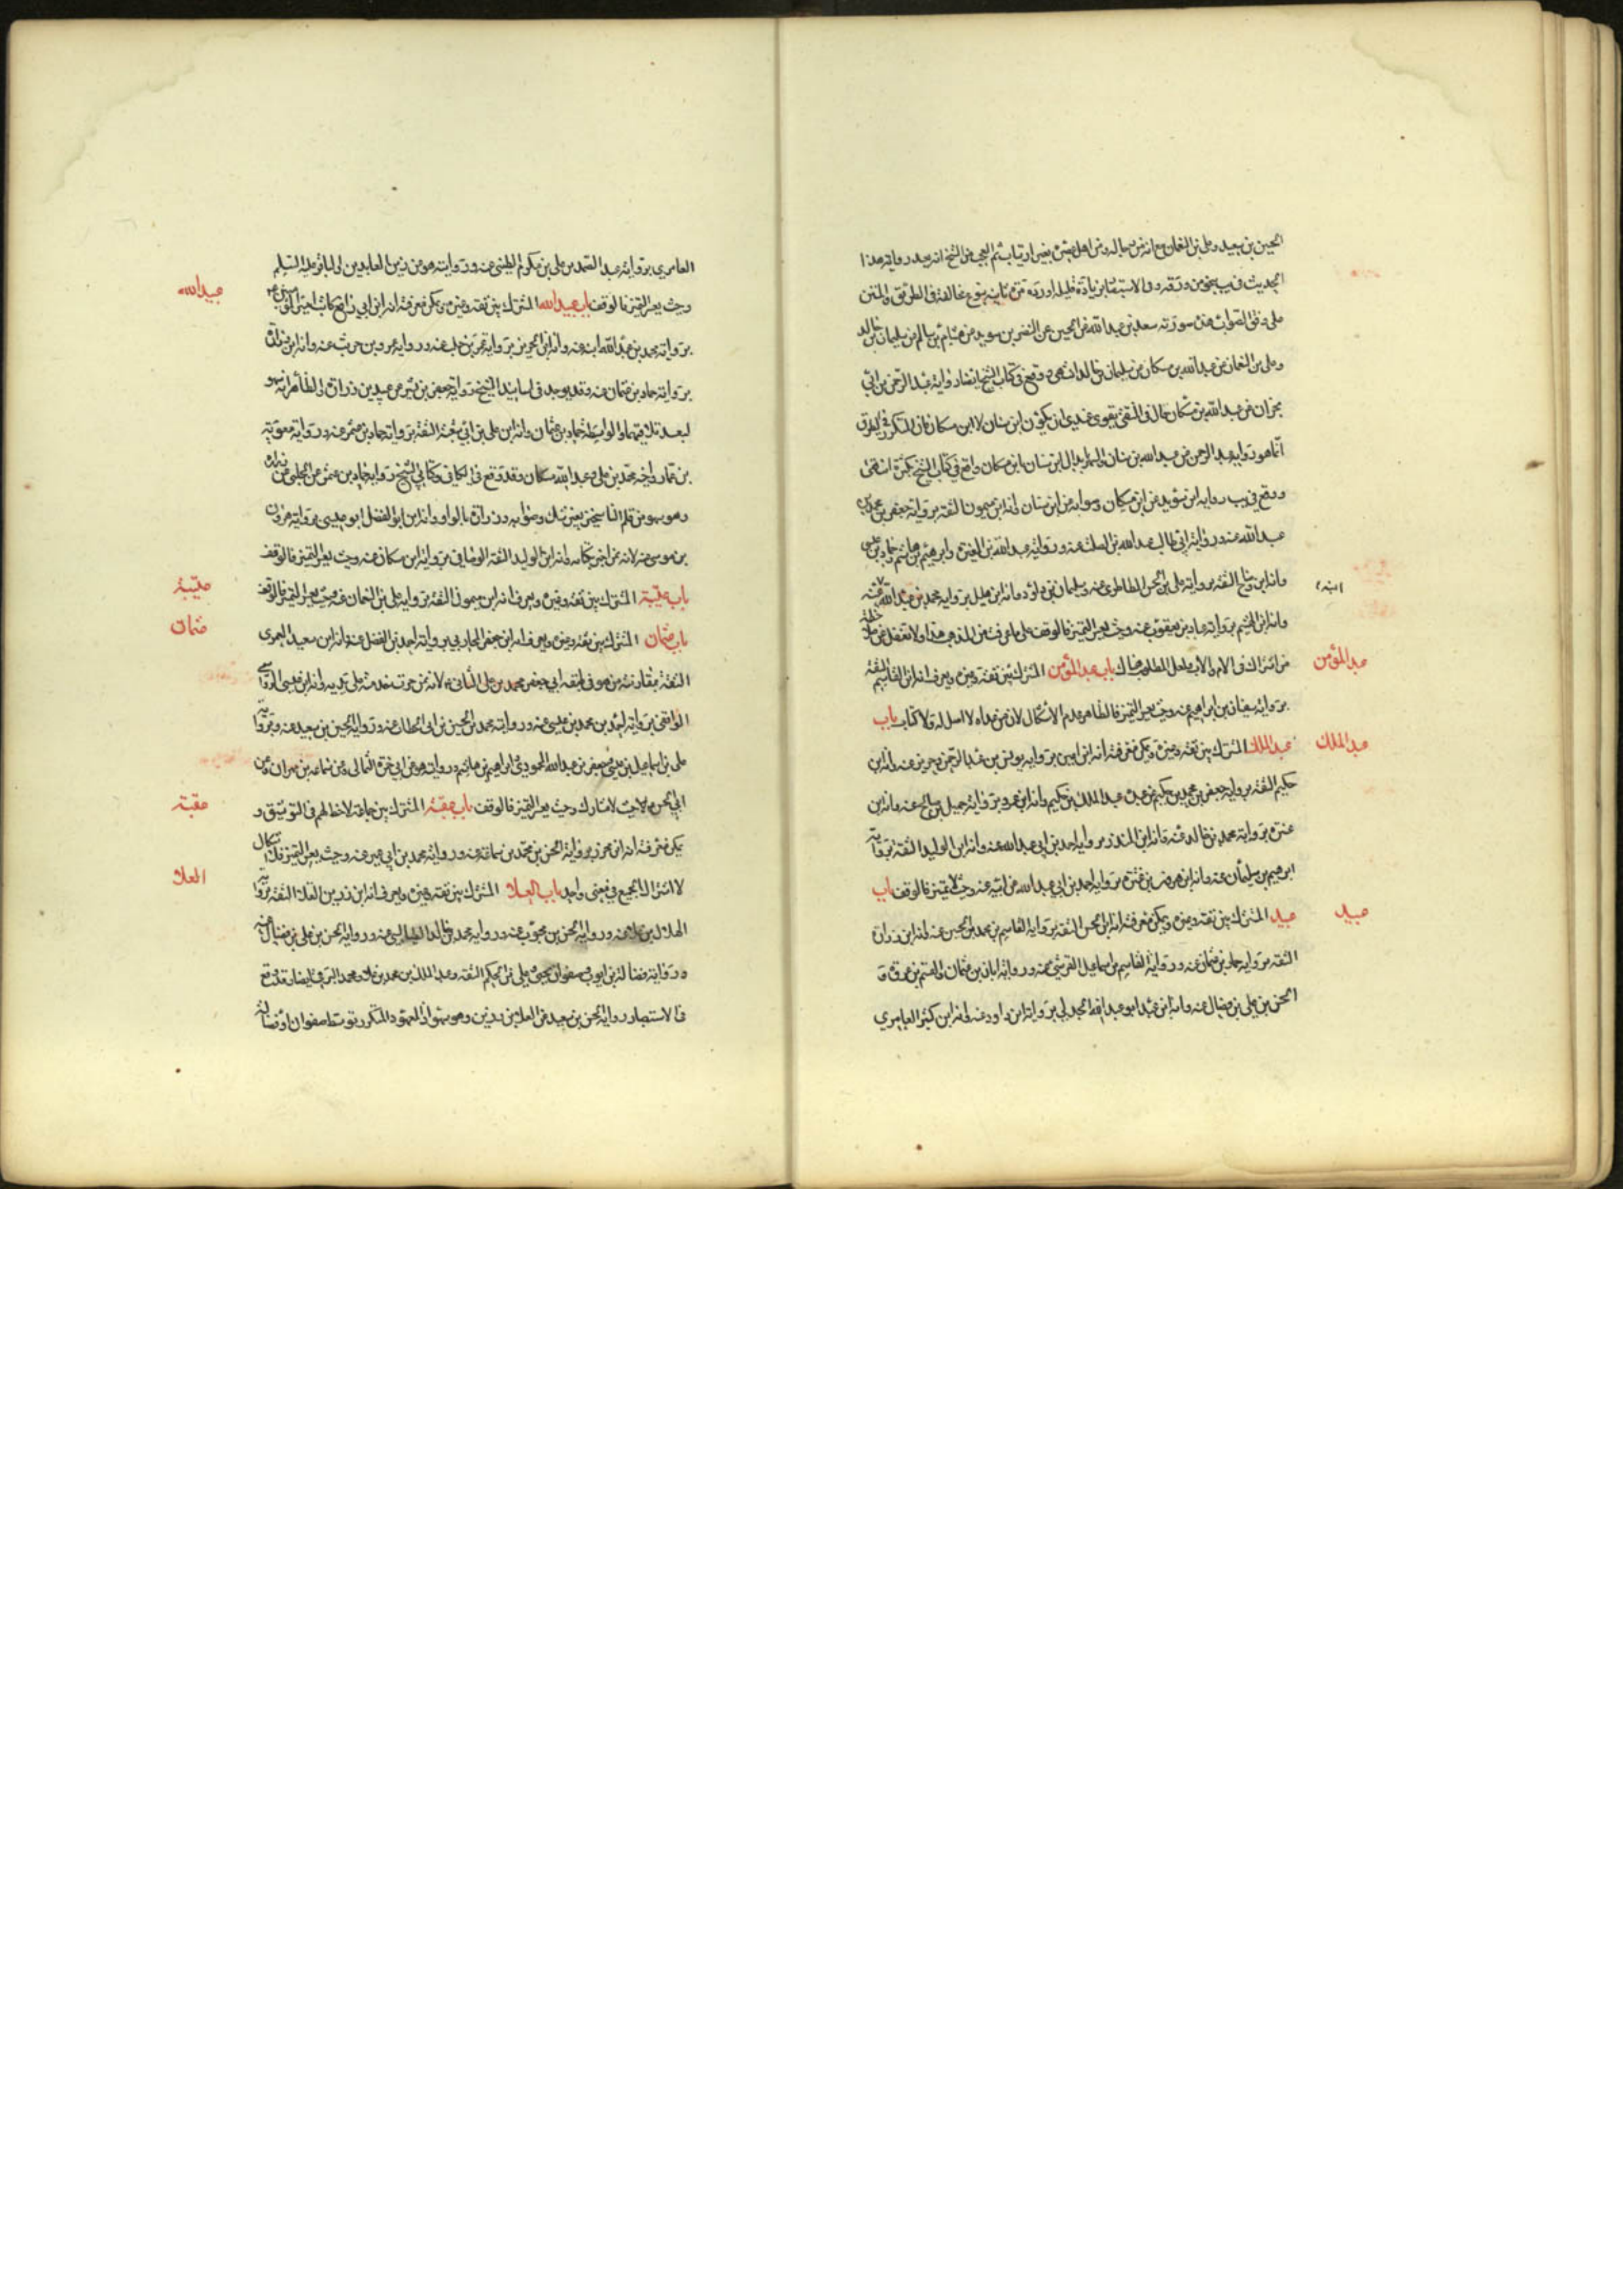 الحسين بن سعيد وعلى بن النعمان مع انه من رجاله ومن اهل عصره بغير ارتياب ثم العجب من الشيخ انه بعد روايته هذا
الحديث في يب
على وفق الصواب هذه صورته سعد بن عبد الله عن الحسين عن النضر بن سويد عن هشام بن سالم عن سليمان بن خالد
وعلى بن النعمان عن عبد الله بن مسكان عن سليمان بن خالد انتهى ووقع في كتاب الشيخ ايضا رواية عبد الرحمن بن ابي
نجران عن عبد الله بن مسكان قال في المنتقى يقوى عندي ان يكون ابن سنان لا ابن مسكان فان المتكرر في الطرق
انما هو رواية عبد الرحمن عن عبد الله بن سنان وابدال ابن سنان بابن مسكان واقع في كتاب الشيخ بكثرة انتهى
ووقع في يب رواية ابن سويد عن ابن مسكان وصوابه عن ابن سنان وانه ابن ميمون الثقة برواية جعفر بن محمد بن
عبد الله عنه ورواية ابي طالب عبد الله بن الصلت عنه ورواية عبد الله بن المغيرة وابرهيم بن هاشم وحماد بن عيسى
وانه ابن وضاح الثقة برواية على بن الحسن الطاطرى عنه وسليمان بن داود وانه ابن هليل برواية محمد بن عبد الله عنه
ابنه
وانه ابن الهيثم برواية عباد بن يعقوب عنه وحيث يعسر التميز فالوقف على ما عرفت من المذهب هذا ولا تغفل عن ملاحظة
من اشترك في الاسم والاب فلعل المطلوب هناك باب عبد المؤمن المشترك بين ثقة وغيره ويعرف انه ابن القاسم الثقة
عبد المؤمن
برواية سفيان بن ابراهيم عنه وحيث يعسر التميز فالظاهر عدم الاشكال لان من عداه لا اصل له ولا كتاب باب
عبد الملك المشترك بين ثقة وغيره ويمكن معرفة انه ابن اعين برواية يونس بن عبد الرحمن وحريز عنه وانه ابن
عبد الملك
حكيم الثقة برواية جعفر بن محمد بن حكيم عن عمه عبد الملك بن حكيم وانه ابن عمرو برواية جميل بن صالح عنه وانه ابن
عنترة برواية محمد بن خالد عنه وانه ابن المنذر برواية احمد بن ابي عبد الله عنه وانه ابن الوليد الثقة برواية
ابرهيم بن سليمان عنه وانه ابن هرون بن عنترة برواية احمد بن ابي عبد الله عن ابيه عنه وحيث لا تميز فالوقف باب
عبيد المشترك بين ثقة وغيره ويمكن معرفة انه ابن الحسن الثقة برواية القاسم بن محمد بن الحسين عنه وانه ابن زرارة
عبيد
الثقة برواية حماد بن عثمان عنه ورواية القاسم بن اسماعيل القرشي عنه ورواية ابان بن عثمان والهيثم بن عروة و
الحسن بن على بن فضال عنه وانه ابن عبد ابو عبد الله الجدلي برواية ابن داود عنه وانه ابن كثير العامري
العامرى برواية عبد الصمد بن على بن مكرم الطستي عنه وروايته هو عن زين العابدين والباقر عليه السلم
وحيث يعسر التميز فالوقف باب عبيد الله المشترك بين ثقة وغيره ويمكن معرفة انه ابن ابي رافع كاتب امير المؤمنين ع
عبيد الله
برواية محمد بن عبد الله ابنه عنه وانه ابن الحر برواية عمرو بن حريث عنه وانه ابن زرارة
برواية حماد بن عثمان عنه وقد يوجد في اسانيد الشيخ رواية جعفر بن بشير عن عبيد بن زرارة والظاهر انه سهو
لبعد تلاقيهما والواسطة حماد بن عثمان وانه ابن على بن ابي شعبة الثقة برواية حماد بن عثمر عنه ورواية معوية
بن عمار واخيه محمد بن على وعبد الله مسكان وقد وقع في الكافي وكتابي الشيخ رواية حماد بن عثمن عن الحلبي عن زرارة
وهو سهو من قلم الناسخين بغير شك وصوابه وزرارة بالواو وانه ابن ابو الفضل ابو عيسى برواية هرون
بن موسى عنه لانه ممن اخبر بكتابه وانه ابن الوليد الثقة الوصافي برواية ابن مسكان عنه وحيث يعسر التميز فالوقف
باب عتيبة المشترك بين ثقة وغيره ويعرف انه ابن ميمون الثقة برواية على بن النعمان عنه وحيث يعسر التميز فالوقف
عتيبة
باب عثمان المشترك بين ثقة وغيره ويعرف انه ابن جعفر المحاربي برواية احمد بن الفضل عنه وانه ابن سعيد العمرى
عثمان
الثقة بمقارنته من هو في طبقة ابي جعفر محمد بن على الثاني ع لانه ممن جرت خدمته على يديه وانه ابن عيسى الرواسي
الواقفي برواية احمد بن محمد بن عيسى عنه ورواية محمد بن الحسين بن ابي الخطاب عنه ورواية الحسين بن سعيد عنه وبرواية
على بن اسماعيل بن عيسى وجعفر بن عبد الله المحمودي وابراهيم بن هاشم وروايته هو عن ابي حمزة الثمالى وعن سماعة بن مهران وعن
ابي الحسن ع لا حيث لا مشارك وحيث يعسر التميز فالوقف باب عقبة المشترك بين جماعة لا حظ لهم في التوثيق و
عقبة
يمكن معرفة انه ابن محرز برواية الحسن بن محمد بن سماعة عنه ورواية محمد بن ابي عمير عنه وحيث يعسر التميز فلا اشكال
لاشتراك الجميع في معنى واحد باب العلا المشترك بين ثقة وغيره ويعرف انه ابن رزين القلا الثقة برواية
العلا
الهلال بن علا عنه ورواية الحسن بن محبوب عنه ورواية محمد بن خالد الطيالسي عنه ورواية الحسن بن على بن فضال عنه
ورواية فضالة بن ايوب وصفوان بن يحيى وعلى بن الحكم الثقة وعبد الملك بن محمد بن خالد ومحمد البرقي ايضا وقد وقع
في الاستبصار رواية الحسن بن سعيد عن العلا بن رزين وهو سهو اذ المعهود المتكرر توسط صفوان او فضالة